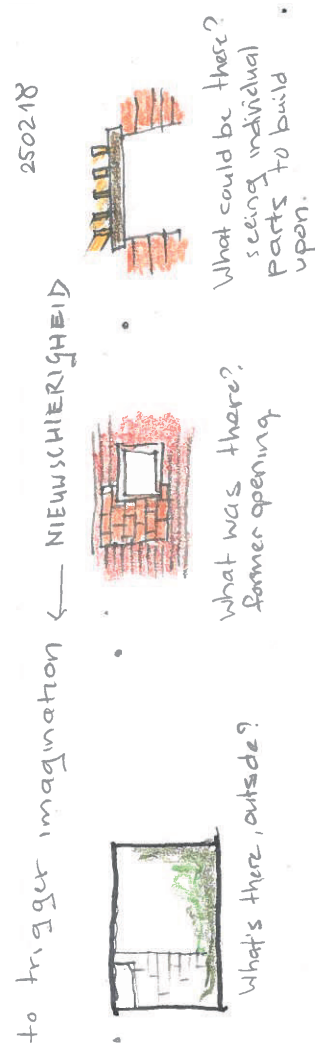 to trigger imagination ← NIEUWSCHIERIGHEID
250218
What's there, outside?
What was there?
former opening
What could be there?
seeing individual
parts to build
upon.